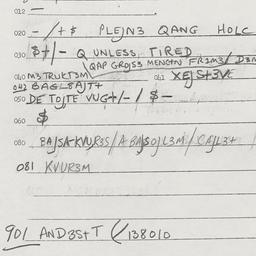 012 —
020 - / + $ PLEJN3 QANG HOLC
030 $+/- Q UNLESS TIRED
QAP GROJS3 MENGTN FR1M3/ D3M
040 M3TRUKT3M 041 XEJS+3V
042 BAGL8AJT+
050 DE TOJTE VUG+/- / $ -
060 $
080 BAJSA-KVUR3S / A BAJSOJL3M / CAJL3+ /
081 KVUR3M
901 AND3S+T (/138010